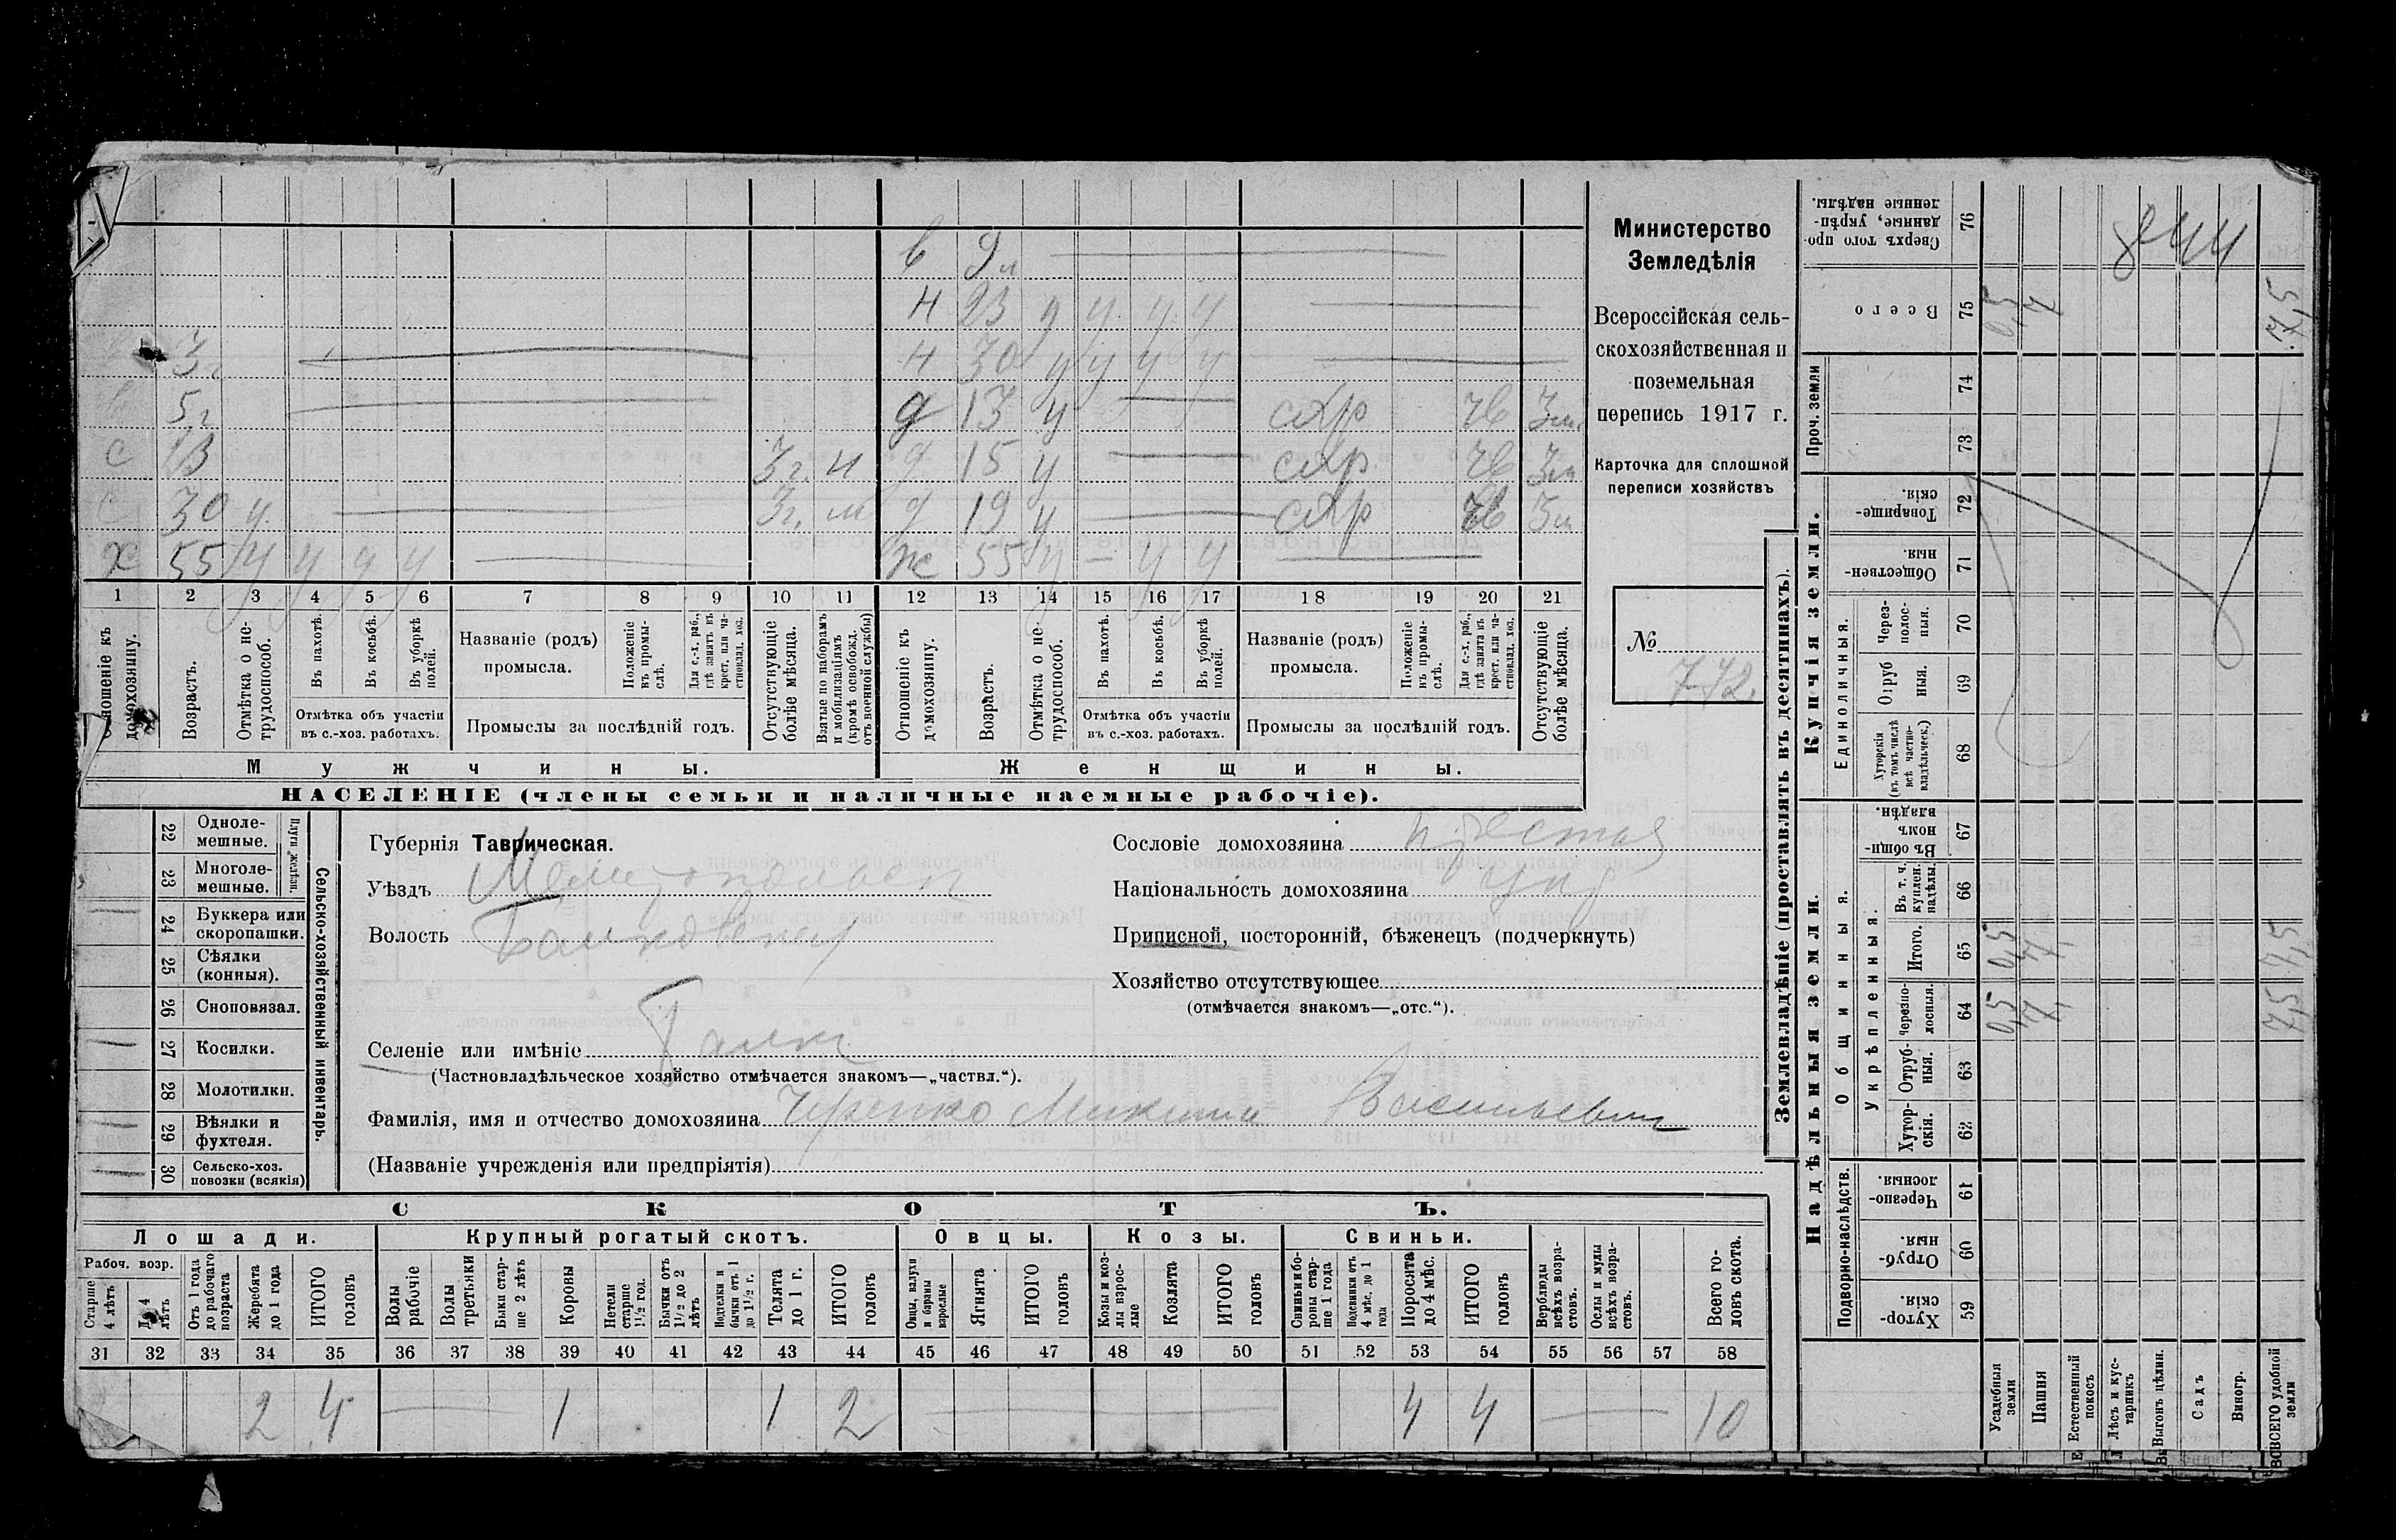 в 9 л
н 23 у у у у
3 г. н 30 у у у у
5 г д 13 у схр 3 м.
с 23 3 г. н д 15 у схр. 3 м
с 30 у 3 г. м д 19 у схр 3 м
х 55 у у у у ж 55 у – у у
1 2 3 4 5 6 7 8 9 10 11 12 13 14 15 16 17 18 19 20 21
Отношеніе къ домохозяину.
Возрастъ.
Отмѣтка о нетрудоспособ.
Въ пахотѣ.
Въ косьбѣ.
Въ уборкѣ полей.
Отмѣтка объ участіи въ с.-хоз. работахъ.
Названіе (родъ) промысла.
Положеніе въ промыслѣ.
Для с.-х. раб., гдѣ занятъ въ крест. или частновлад. хоз.
Промыслы за послѣдній годъ.
Отсутствующіе болѣе мѣсяца.
Взятые по наборамъ и мобилизаціямъ (кромѣ освобожд. отъ военной службы)
Отношеніе къ домохозяину.
Возрастъ.
Отмѣтка о нетрудоспособ.
Въ пахотѣ.
Въ косьбѣ.
Въ уборкѣ полей.
Отмѣтка объ участіи въ с.-хоз. работахъ.
Названіе (родъ) промысла.
Положеніе въ промыслѣ.
Для с.-х. раб., гдѣ занятъ въ крест. или частновлад. хоз.
Промыслы за послѣдній годъ.
Отсутствующіе болѣе мѣсяца.
Мужчины. Женщины.
НАСЕЛЕНІЕ (члены семьи и наличные наемные рабочіе).
Министерство
Земледѣлія
Всероссійская сель-
скохозяйственная и
поземельная
перепись 1917 г.
Карточка для сплошной
переписи хозяйствъ
№
772
22 Однолемешные.
23 Многолемешные.
Плуги желѣзн.
24 Буккера или скоропашки.
25 Сѣялки (конныя).
26 Сноповязал.
27 Косилки.
28 Молотилки.
29 Вѣялки и фухтеля.
30 Сельско-хоз. повозки (всякія)
Сельско-хозяйственный инвентарь.
Губернія Таврическая.
Уѣздъ Мелитопольск
Волость
Селеніе или имѣніе
(Частновладѣльческое хозяйство отмѣчается знакомъ—„частвл.“).
Фамилія, имя и отчество домохозяина Микита Васильевич
(Названіе учрежденія или предпріятія)
Сословіе домохозяина
Національность домохозяина укр
Приписной, посторонній, бѣженецъ (подчеркнуть)
Хозяйство отсутствующее
(отмѣчается знакомъ—„отс.“).
СКОТЪ.
Лошади. Крупный рогатый скотъ. Овцы. Козы. Свиньи.
Рабоч. возр.
Старше 4 лѣтъ
До 4 лѣтъ
Отъ 1 года до рабочаго возраста
Жеребята до 1 года
ИТОГО головъ
Волы рабочіе
Волы третьяки
Быки старше 2 лѣтъ
Коровы
Нетели старше 1½ год.
Бычки отъ 1½ до 2 лѣтъ
Подтелки и бычки отъ 1 до 1½ г.
Телята до 1 г.
ИТОГО головъ
Овцы, валухи и бараны взрослые
Ягнята
ИТОГО головъ
Козы и козлы взрослые
Козлята
ИТОГО головъ
Свиньи и боровы старше 1 года
Подсвинки отъ 4 мѣс. до 1 года
Поросята до 4 мѣс.
ИТОГО головъ
Верблюды всѣхъ возрастовъ.
Ослы и мулы всѣхъ возрастовъ.
Всего головъ скота.
31 32 33 34 35 36 37 38 39 40 41 42 43 44 45 46 47 48 49 50 51 52 53 54 55 56 57 58
2 4 1 1 2 4 4 10
Землевладѣніе (проставлять въ десятинахъ).
Сверхъ того проданные, укрѣпленные надѣлы. 76
844
Всего 75 0,5 7 7,5
Проч. земли 74 73
Купчія земли.
Товарищескія. 72
Общественныя. 71
Единоличныя.
Черезполосныя. 70
Отрубныя. 69
Хуторскія (въ томъ числѣ всѣ частновладѣльческ.) 68
Надѣльныя земли.
Общинныя.
Въ общинномъ владѣн. 67
Укрѣпленныя.
Въ т. ч. куплен. надѣлы. 66
Итого. 65 0,5 7, 7,5
Черезполосныя. 64 0,5 7, 7,5
Отрубныя. 63
Хуторскія. 62
Подворно-наслѣдств.
Черезполосныя. 61
Отрубныя. 60
Хуторскія. 59
Усадебныя земли
Пашня
Естественный покосъ
Лѣсъ и кустарникъ
Выгонъ цѣлин.
Садъ
Виногр.
ВСЕГО удобной земли